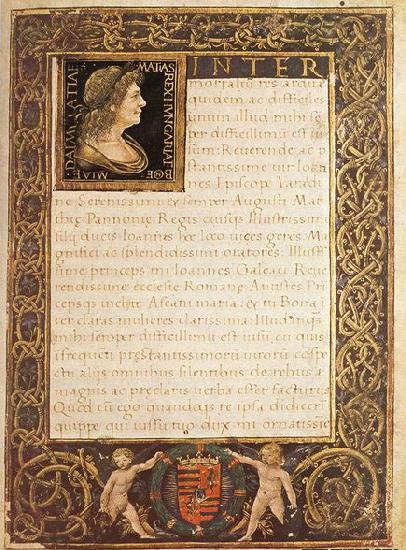 MATIAS REX HVNGARIAE
INTER
mortaliũ res ardua
quidem ac difficiles
unum illud mihi se
per difficillimũ est ui
sum: Reuerende ac p
stantissime uir Ioan
nes Episcope Varadi
ne Serenissimi & semper Augusti Mat
thię Pannonię Regis eiusque Illustrissimi
filij ducis Ioannis hoc loco uices geres: Ma
gnifici ac splendidissimi oratores: Illuss
sime princeps mi Ioannes Galeaz: Reue
rendissime ecclesię Romanę Antistes Pri
cepsque inclyte Ascani maria: & tu Bona i
ter claras mulieres clarissima: Illud inquã
mihi semper difficillimũ est uisũ, cũ quis
ĩ frequẽti prestantissimorũ uirorũ cospe
ctu alijs omnibus silentibus de rebus
magnis ac preclaris uerba esset facturus.
Quod cũ ego quandoque re ipsa didiceri
quippe qui iussu tuo dux mi ornatissi